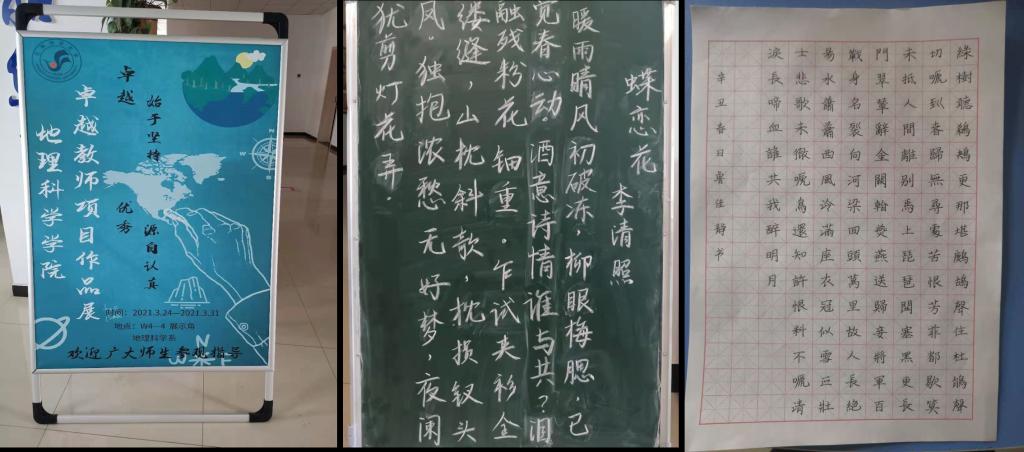 卓越
始于坚持
优秀
源自认真
卓越教师项目作品展
地理科学学院
时间：2021.3.24—2021.3.31
地点：W4—4 展示角
地理科学系
欢迎广大师生参观指导
蝶恋花 李清照
暖雨晴风初破冻，柳眼梅腮，已
觉春心动。酒意诗情谁与共？泪
融残粉花钿重。乍试夹衫金
缕缝，山枕斜欹，枕损钗头
凤。独抱浓愁无好梦，夜阑
犹剪灯花弄。
綠樹聽鵜鴂更那堪鷓鴣聲住杜鵑聲
切嗁到春歸無尋處苦恨芳菲都歇筭
未抵人間離別馬上琵琶關塞黑更長
門翠輦辭金闕看燕燕送歸妾將軍百
戰身名裂向河梁回頭萬里故人長絕
易水蕭蕭西風冷滿座衣冠似雪正壯
士悲歌未徹嗁鳥還知許恨料不嗁清
淚長啼血誰共我醉明月
辛丑春日佳静书